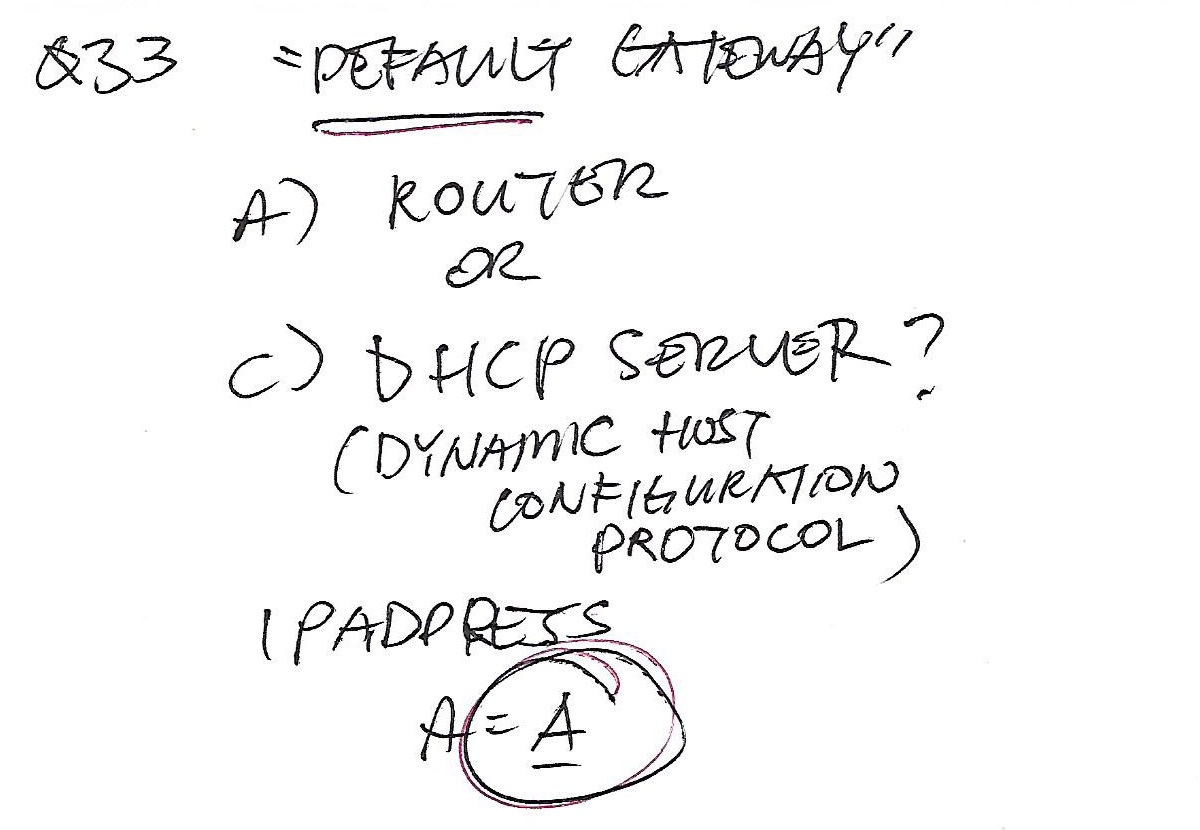 Q33 "DEFAULT GATEWAY"
A) ROUTER
OR
C) DHCP SERVER?
(DYNAMIC HOST
CONFIGURATION
PROTOCOL)
IP ADDRESS
A = A